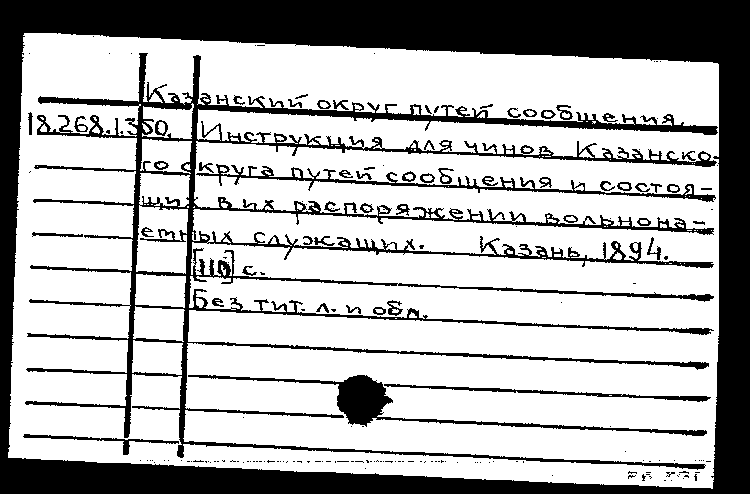 Казанский округ путей сообщения.
18.268.1.350. Инструкция для чинов Казанско-
го округа путей сообщения и состоя-
щих в их распоряжении вольнона-
емных служащих. Казань, 1894.
[110] с.
Без тит. л. и обл.